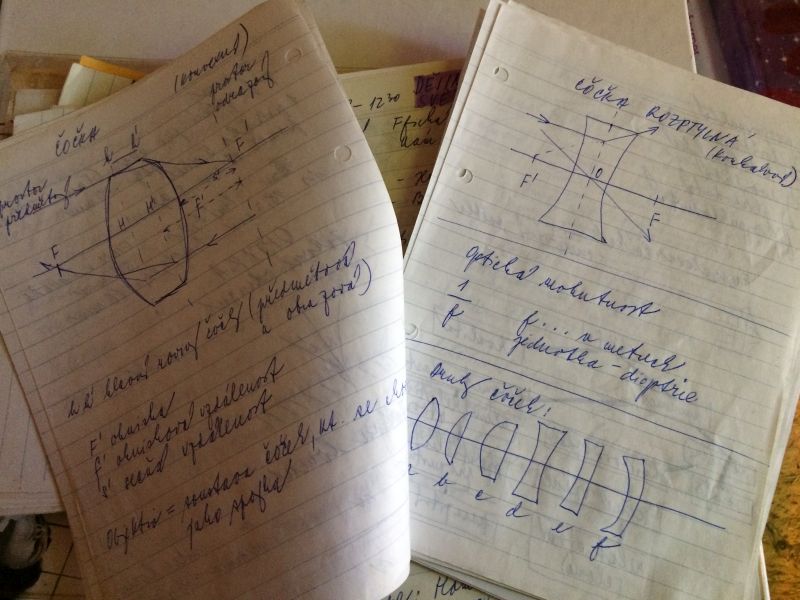 ČOČKA
(konvexní)
prostor
obrazový
h h'
prostor
předmětový
F'
F'
s'
f'
H H'
F
h h' hlavní roviny čočky (předmětová
a obrazová)
F' ohnisko
f' ohnisková vzdálenost
s' sečná vzdálenost
Objektiv = soustava čoček, kt. se chová
jako spojka
1230
DĚTI
ČOČKA ROZPTYLNÁ
(konkávní)
F' O
F
optická mohutnost
1
f
f... v metrech
jednotka - dioptrie
Druhy čoček:
a b c d e f